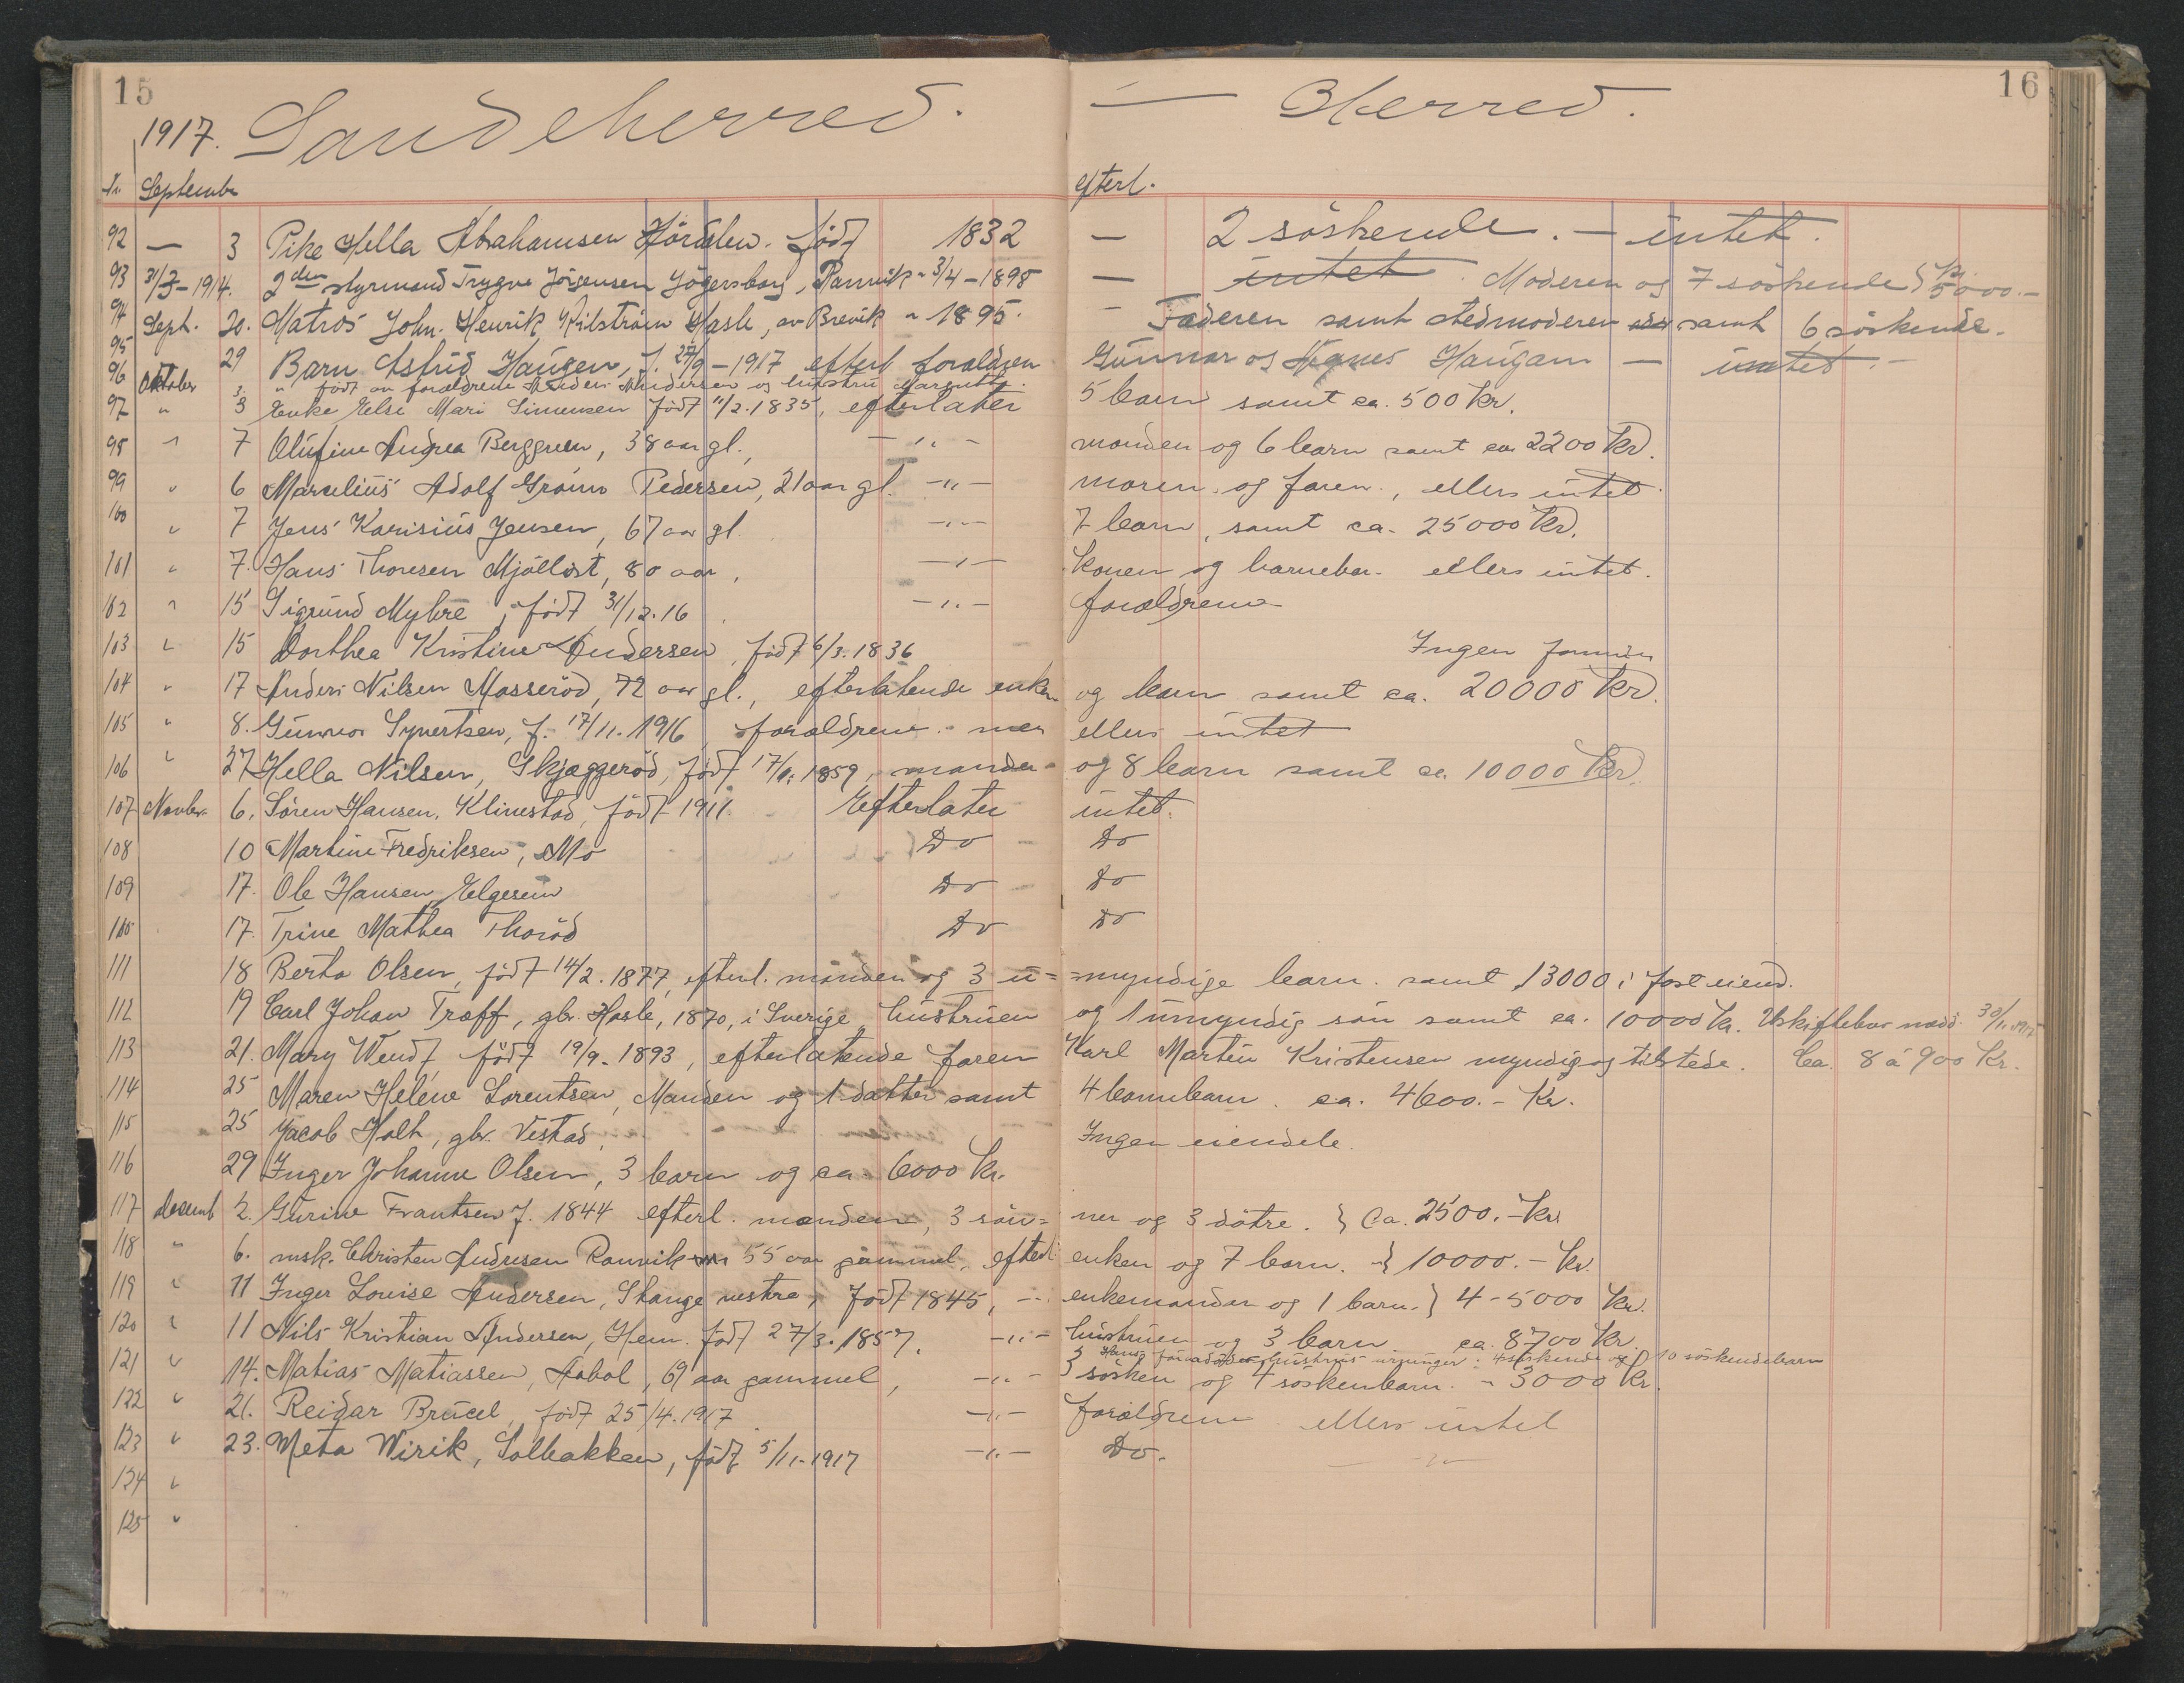 15
16
1917. Sandeherred. — Herred.
Nr September efterl.
92 — 3 Pike Hella Abrahamsen födt 1832 — 2 söskende. — intet.
93 31/3-1914. 2den styrmand Trygve Jörgensen Jögersborg, Ranvik " 3/4-1898 — intet. Moderen og 7 söskende } Kr. 5000.-
94 Sept. 20. Matros John. Henrik Kilström Hasle, av Brevik " 1895. — Faderen samt stedmoderen samt 6 söskende.
95 29 Barn Astrid Haugen, f. 27/9-1917 efterl forældren Gunnar og Agnes Haugan — intet.-
96 Oktober 3 " född av forældrene Anders Andersen og hustru
97 " 3 Enke Else Mari Simensen födt 11/2.1835, efterlater 5 barn samt ca. 500 Kr.
98 " 7 Olufine Andrea Berggreen, 38 aar gl., — " — manden og 6 barn samt ca 2200 Kr.
99 " 6 Marselius Adolf Gröno Pedersen, 21 aar gl. — " — moren og faren, ellers intet.
100 " 7 Jens Karisius Jensen, 67 aar gl. — " — 7 barn, samt ca. 25000 Kr.
101 " 7. Hans Thoresen Mjöllöst, 80 aar, — " — konen og barnebar- ellers intet.
102 " 15 Sigrund Myhre, födt 31/12.16 — " — forældrene
103 " 15 Dorthea Kristine Andersen, födt 6/3.1836 Ingen formue
104 " 17 Anders Nilsen Masseröd, 72 aar gl., efterlatende enken og barn samt ca. 20000 Kr.
105 " 8. Gunnor Syvertsen, f. 17/11.1916, forældrene. men ellers intet
106 " 27 Hella Nilsen, Skjæggeröd, födt 1859, manden og 8 barn samt ca. 10000 Kr.
107 Novbr. 6. Sören Hansen, Klinestad, födt 1911. Efterlater intet.
108 10 Martine Fredriksen, Mo Do Do
109 17. Ole Hansen, Elgesem Do Do
110 17. Trine Mathea Thoröd Do Do
111 18 Berta Olsen, födt 14/2.1877, efterl. manden og 3 u= =myndige barn. samt 13000 i fast eiend.
112 19 Carl Johan Træff, gbr. Hasle, 1870, i Sverige, hustruen og 1 umyndig sön samt ca. 10000 Kr. Uskiftebev nædd. 30/11.1917
113 21. Mary Wendt, födt 19/9-1893, efterlatende faren Karl Martin Kristensen myndig og tilstede. Ca. 8 á 900 Kr.
114 25 Maren Helene Lorentsen, Manden og 1 datter samt 4 barnebarn. ca. 4600.- Kr.
115 25 Jacob Holt, gbr. Vestad, Ingen eiendele.
116 29 Inger Johanne Olsen, 3 barn og ca. 6000 Kr.
117 Desemb 2. Gurine Frantsen f. 1844 efterl. manden, 3 sön= ner og 3 dötre. } Ca. 2500.- Kr.
118 " 6. msk. Christen Andresen Ranvik 55 aar gammel, efterl enken og 7 barn. } 10000.- Kr.
119 " 11 Inger Lovise Andersen, Skange vestre, födt 1845, — " enkemanden og 1 barn. } 4-5000 Kr.
120 " 11 Nils Kristian Andersen, Hem. födt 27/3.1857, — " — hustruen og 3 barn ca. 8700 Kr.
hustrus arvinger: 4 söskende og 10 söskendebarn
121 " 14. Matias Matiassen, Aabol, 69 aar gammel, — " — 3 sösken og 4 söskenbarn. " 3000 Kr.
122 " 21. Reidar Brucel, födt 25/4.1917 — " — forældrene ellers intet
123 " 23. Meta Wirik, Solbakken, födt 5/11-1917 — " — Do. — " —
124 "
125 "